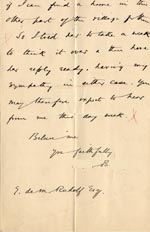 if I can find a home in this
other part of the village for her
So I told her to take a week
to think it over & then have
her reply ready, having my
sympathy in either case. You
may therefore expect to hear
from me this day week.
Believe me
Yrs faithfully
E. de M. Rudolf Esq.